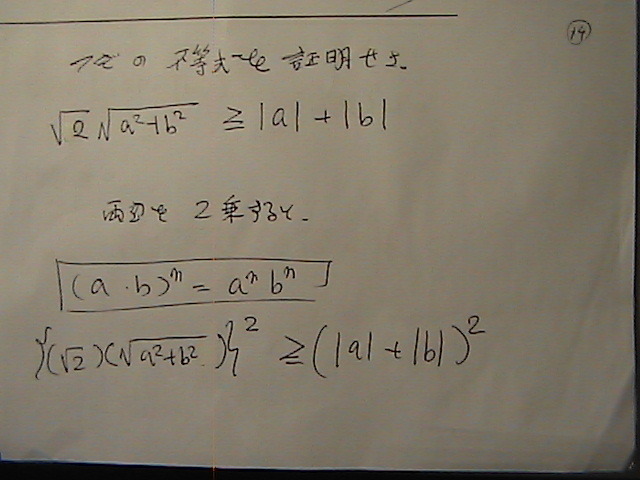 ⑭
次の不等式を証明せよ.
√2 √(a²+b²) ≧ |a| + |b|
両辺を2乗すると.
(a・b)ⁿ = aⁿ bⁿ
{(√2)(√(a²+b²))}² ≧ (|a| + |b|)²